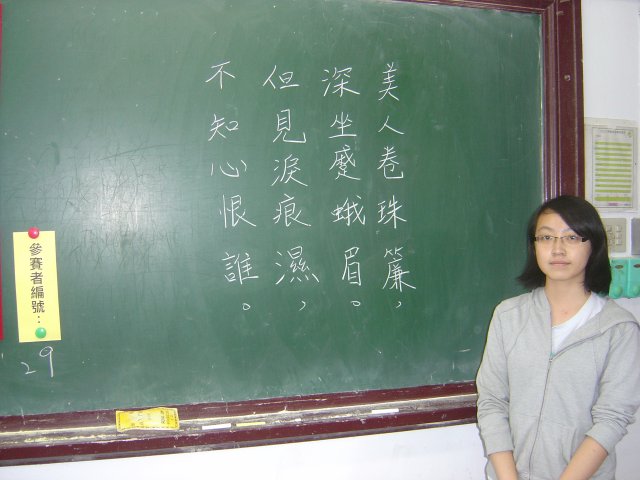 美人卷珠簾，
深坐蹙蛾眉。
但見淚痕濕，
不知心恨誰。
參賽者編號：
29